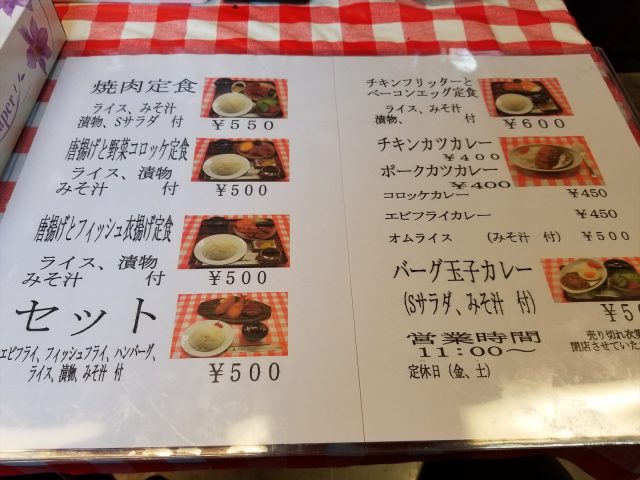 焼肉定食
ライス、みそ汁
漬物、Sサラダ 付
￥550
唐揚げと野菜コロッケ定食
ライス、漬物
みそ汁 付
￥500
唐揚げとフィッシュ衣揚げ定食
ライス、漬物
みそ汁 付
￥500
セット
エビフライ、フィッシュフライ、ハンバーグ、
ライス、漬物、みそ汁 付
￥500
チキンフリッターと
ベーコンエッグ定食
ライス、みそ汁
漬物、 付
￥600
チキンカツカレー
￥400
ポークカツカレー
￥400
コロッケカレー ￥450
エビフライカレー ￥450
オムライス (みそ汁 付) ￥500
バーグ玉子カレー
(Sサラダ、みそ汁 付)
営業時間
11:00～
定休日（金、土）
売り切れ次
閉店させていた